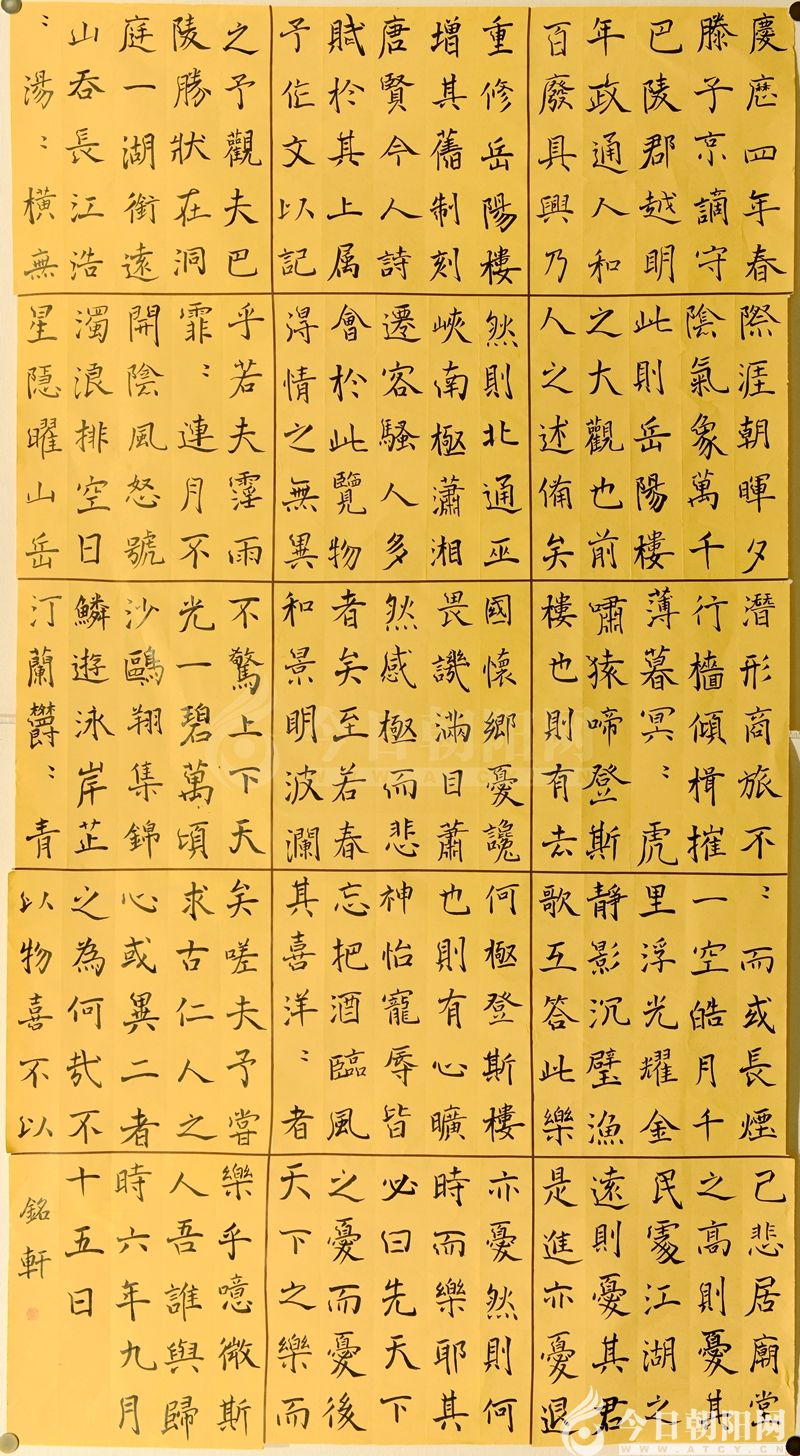 慶曆四年春
滕子京謫守
巴陵郡越明
年政通人和
百廢具興乃
重修岳陽樓
增其舊制刻
唐賢今人詩
賦於其上属
予作文以記
之予觀夫巴
陵勝狀在洞
庭一湖銜遠
山吞長江浩
：湯：橫無
際涯朝暉夕
陰氣象萬千
此則岳陽樓
之大觀也前
人之述備矣
然則北通巫
峽南極瀟湘
遷客騷人多
會於此覽物
得情之無異
乎若夫霪雨
霏：連月不
開陰風怒號
濁浪排空日
星隱曜山岳
潛形商旅不
行檣傾楫摧
薄暮冥：虎
嘯猿啼登斯
樓也則有去
國懷鄉憂讒
畏譏滿目蕭
然感極而悲
者矣至若春
和景明波瀾
不驚上下天
光一碧萬頃
沙鷗翔集錦
鱗遊泳岸芷
汀蘭欝：青
：而或長煙
一空皓月千
里浮光耀金
静影沉璧漁
歌互答此樂
何極登斯樓
也則有心曠
神怡寵辱皆
忘把酒臨風
其喜洋：者
矣嗟夫予嘗
求古仁人之
心或異二者
之為何哉不
以物喜不以
己悲居廟堂
之高則憂其
民處江湖之
遠則憂其君
是進亦憂退
亦憂然則何
時而樂耶其
必曰先天下
之憂而憂後
天下之樂而
樂乎噫微斯
人吾誰與歸
時六年九月
十五日
銘軒
今日朝阳网
今日朝阳网
WWW.ATCYV.CN